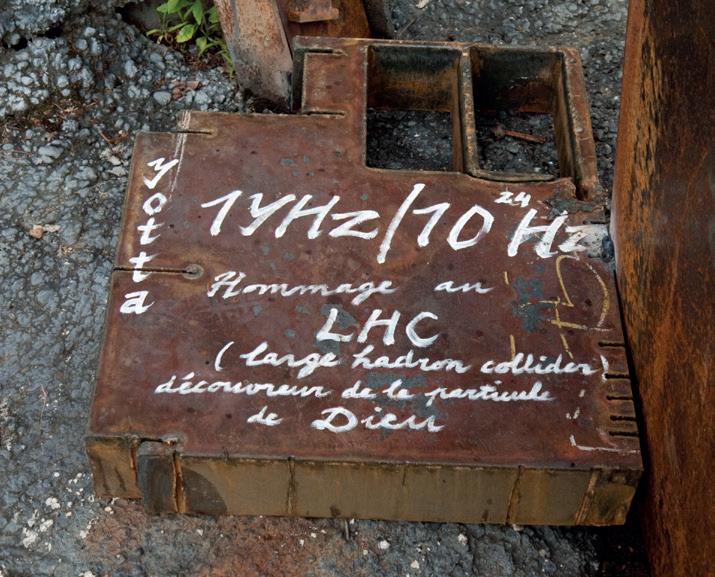 yotta
1YHz/10²⁴Hz
Hommage au
LHC
(large hadron collider)
découvreur de la particule
de Dieu